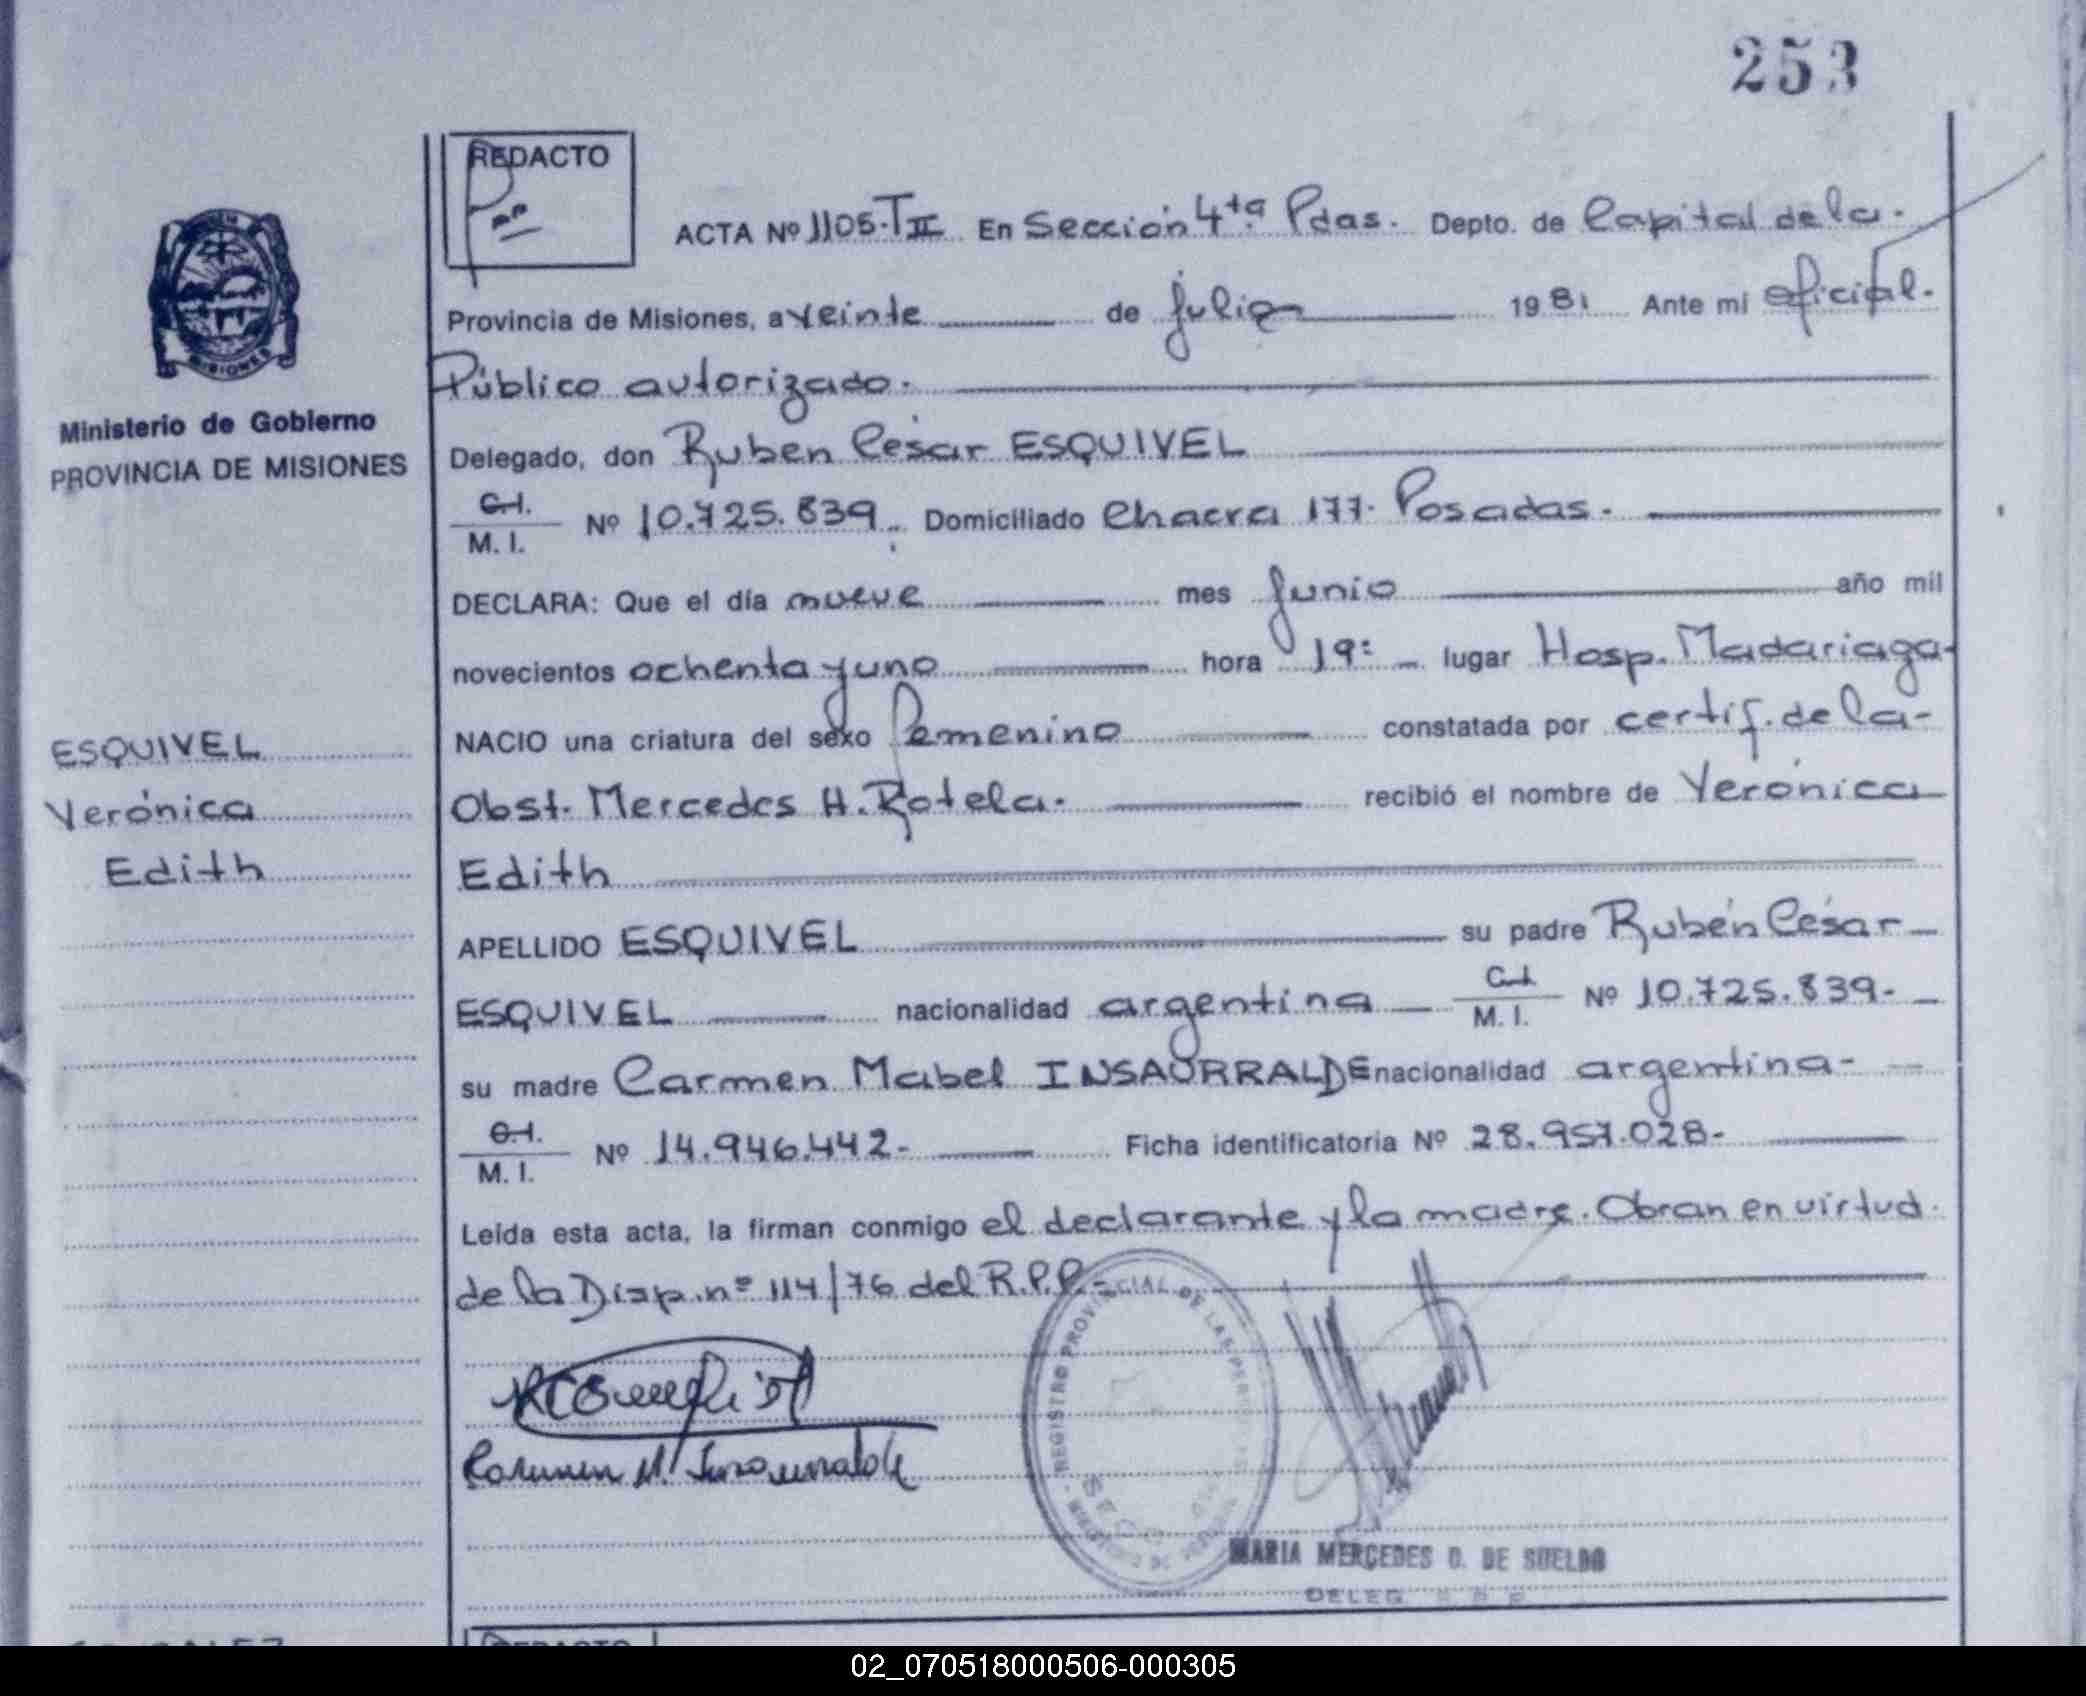 253
REDACTO
ACTA Nº 1105-T II En Sección 4ta Pdas. Depto. de Capital de la-
Provincia de Misiones, a veinte de julio 1981 Ante mi oficial-
Público autorizado.
Delegado, don Ruben César ESQUIVEL
C.I. M. I. Nº 10.725.839. Domiciliado Chacra 177- Posadas.
DECLARA: Que el día nueve mes Junio año mil
novecientos ochenta y uno hora 19: lugar Hosp. Madariaga-
NACIO una criatura del sexo femenino constatada por certif. de la-
Obst. Mercedes H. Rotela- recibió el nombre de Verónica
Edith
APELLIDO ESQUIVEL su padre Rubén César
ESQUIVEL nacionalidad argentina C.I. M. I. Nº 10.725.839-
su madre Carmen Mabel INSAURRALDE nacionalidad argentina-
C.I. M. I. Nº 14.946.442- Ficha identificatoria Nº 28.957.028-
Leída esta acta, la firman conmigo el declarante y la madre. Obran en virtud
de la Disp. nº 114/76 del R.P.P.-
Carmen M. Insaurralde
REGISTRO PROVINCIAL DE LAS PERSONAS
MARIA MERCEDES D. DE SUELDO
DELEG. R P P
MISIONES
Ministerio de Gobierno
PROVINCIA DE MISIONES
ESQUIVEL
Verónica
Edith
REDACTO
02_070518000506-000305